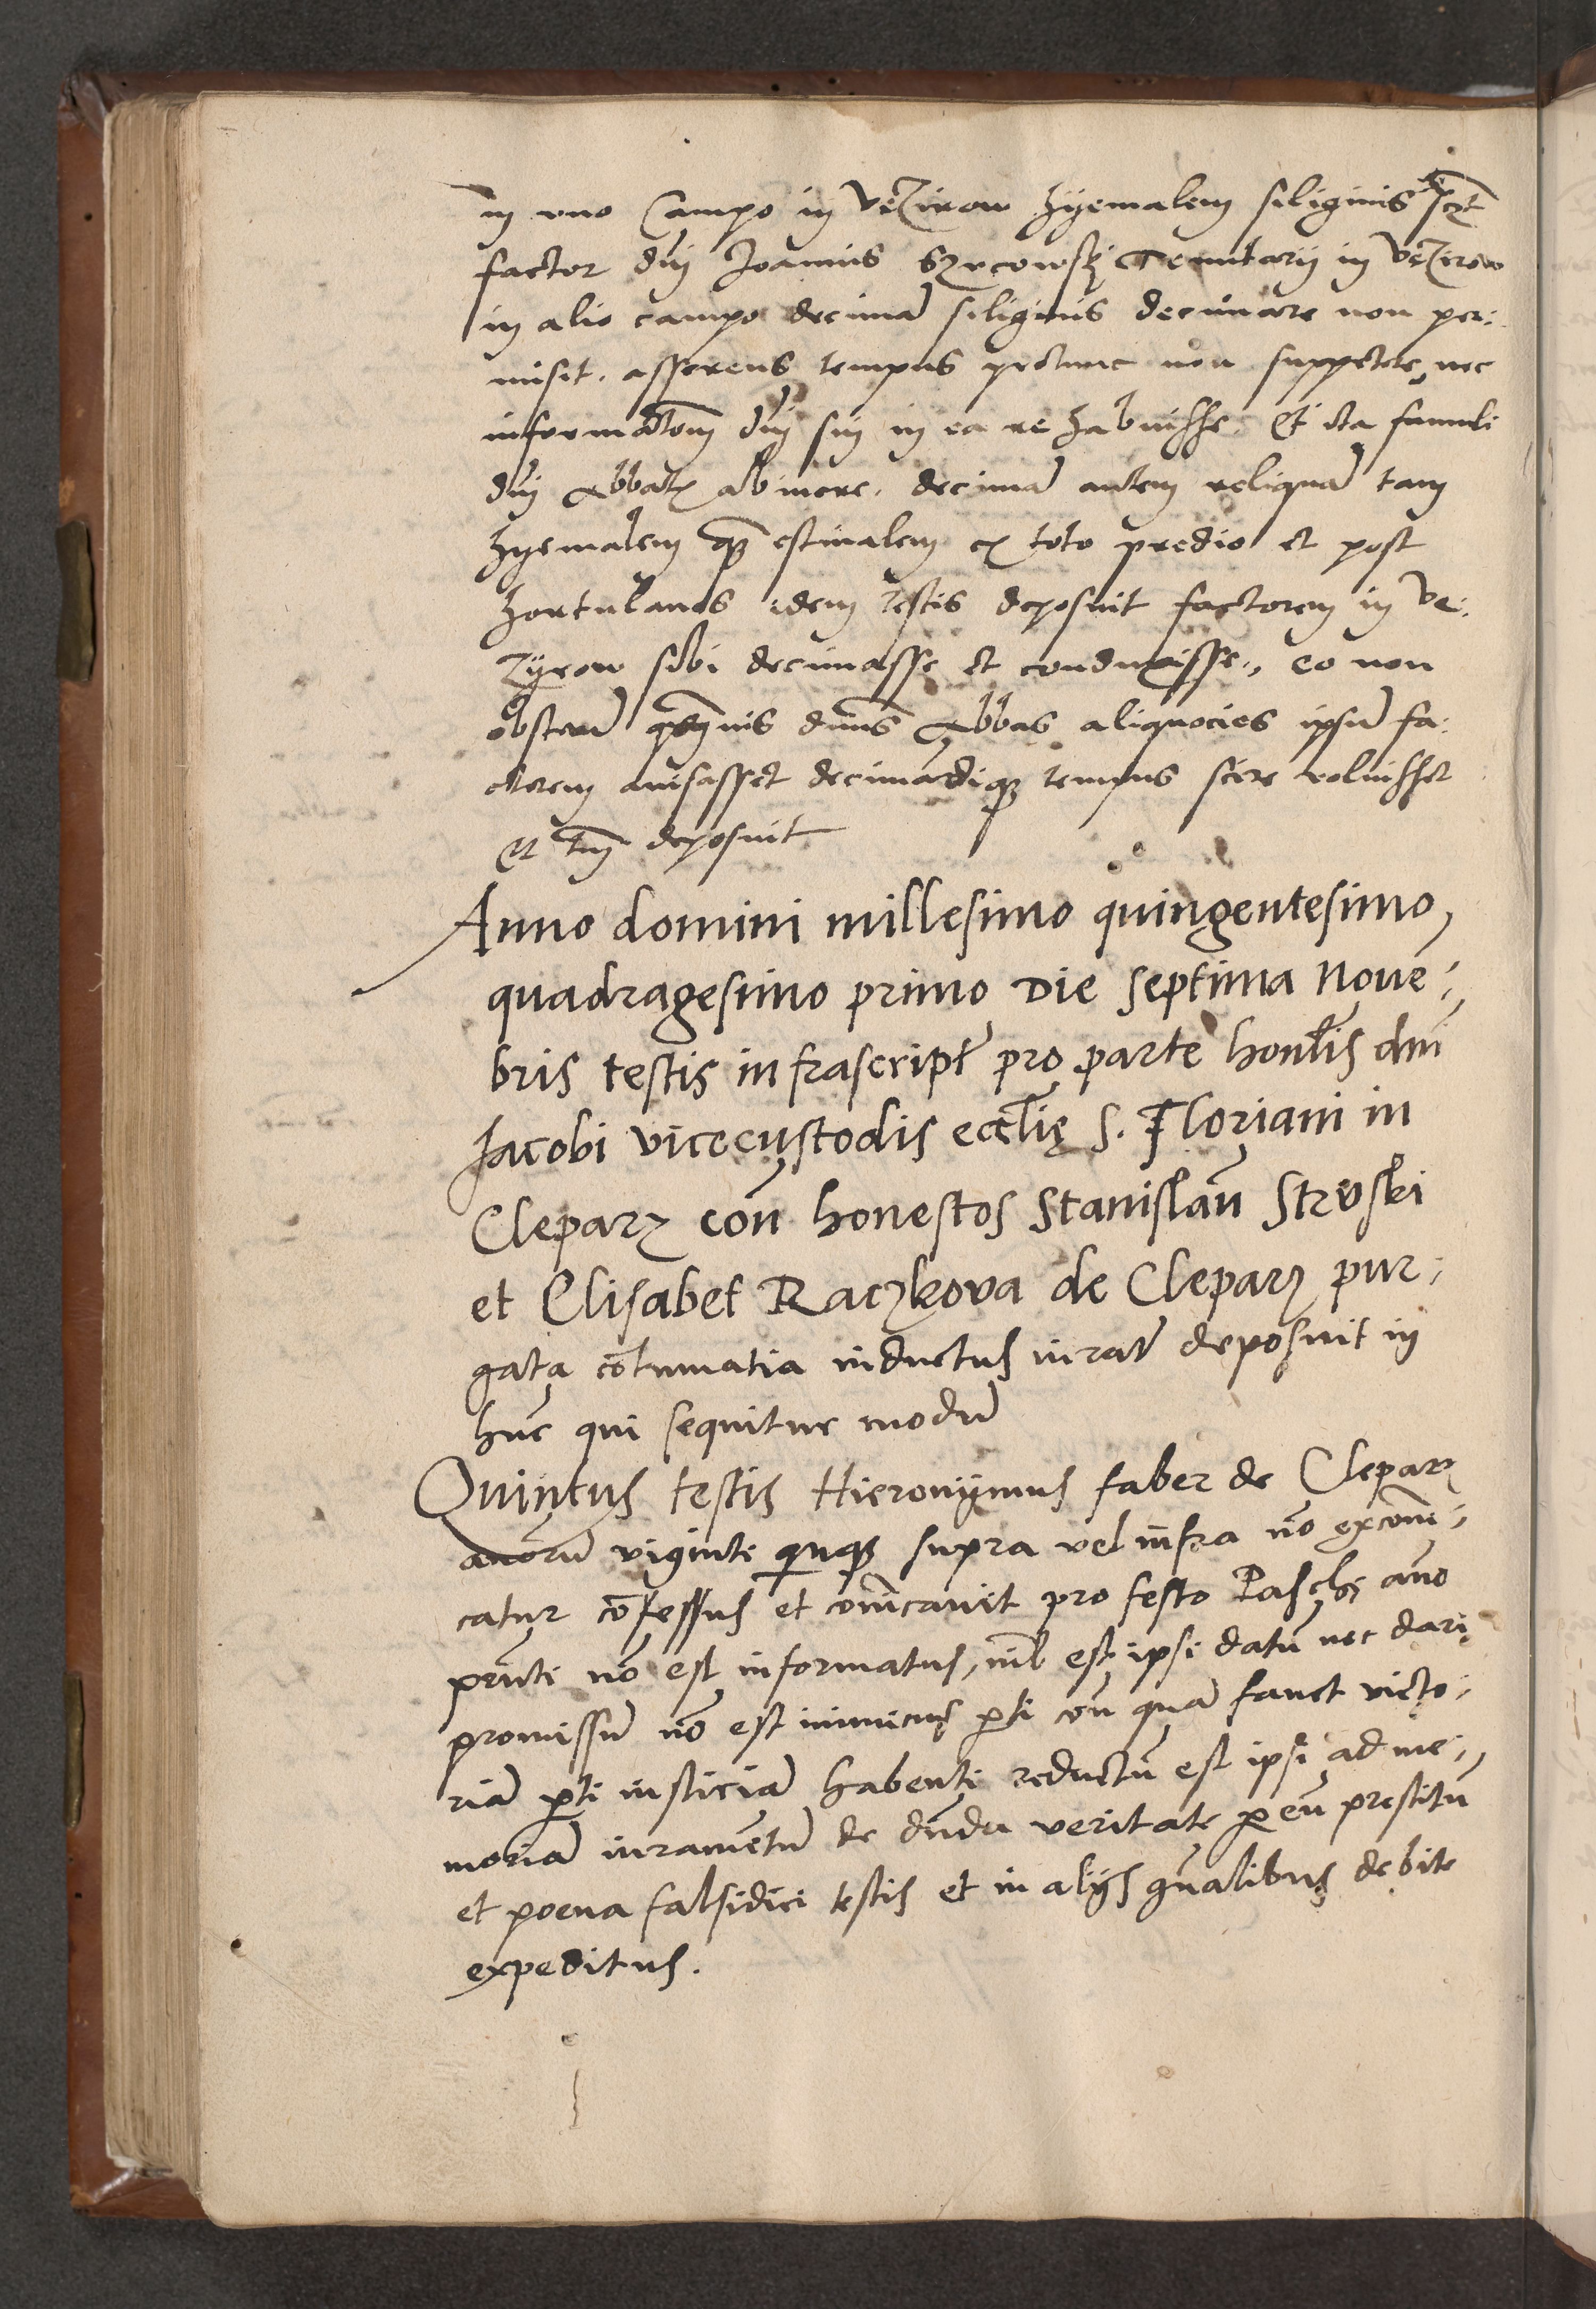 in uno Campo in Vęzirow hyemalem siliginis
factor dni Joannis Szrcowski Tenutarii in Vęzirow
in alio campo decimā siliginis decimare non per:
misit. asserens tempus protunc non suppetere, nec
informatom dni sui in ea re habuisse. Et ita famuli
dni Abbatis abivere. decimā autem reliquā tam
hyemalem quam estivalem ex toto predio et post
hortulanos idem testis deposuit factorem in Ve:
zÿrow sibi decimasse et conduxisse, eo non
obstatē dnūs Abbas aliquocies ipsū fa:
ctorem avisasset decimandiq tempus scire voluisset
et tm deposuit
Anno domini millesimo quingentesimo,
quadragesimo primo Die septima Nouē:
bris testis infrascript pro parte honlis dni
Jacobi vicecustodis ecclię S. Floriani in
Clepar₃ con honestos Stanislaū Struski
et Elisabet Raczkova de Clepar₃ pur:
gata cōtumatia inductus iurat deposuit in
hūc qui sequitur modū
Quintus testis Hieronÿmus faber de Clepar₃
annorū viginti quinq supra vel infra nō excom:
catur cōfessus et comcavit pro festo Paschę ano
prnti nō est informatus, nil est ipsi datū nec dari
promissū nō est inimicus pti con quā favet victo:
riā pti iusticiā habenti reductū est ipsi ad me:
moriā iuramentū de dnda veritate p eū prestitū
et poena falsidici testis et in alÿs gnalibus debite
expeditus.